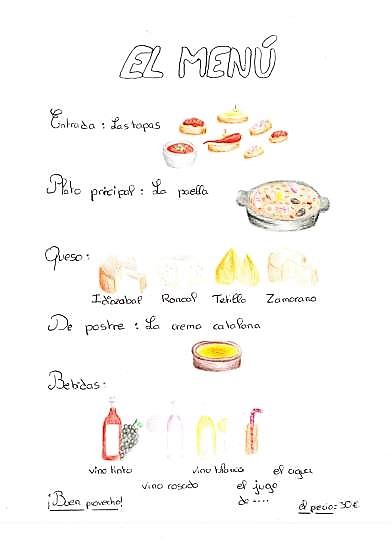 EL MENÚ
Entrada : Las tapas
Plato pricipal : La paella
Queso :
Idiazabal Roncal Tetilla Zamorano
De postre : La crema catalana
Bebidas :
vino tinto vino blanco el agua
vino rosado el jugo
de ....
¡Buen provecho! el pecio : 30€